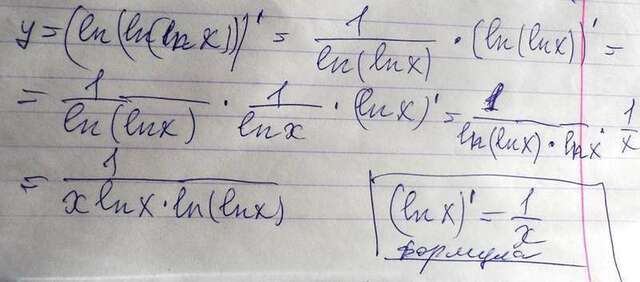 y = (ln(ln(ln x)))' = 1/ln(ln x) · (ln(ln x))' =
= 1/ln(ln x) · 1/ln x · (ln x)' = 1/ln(ln x) · ln x · 1/x
= 1/x ln x · ln(ln x)
(ln x)' = 1/x
формула